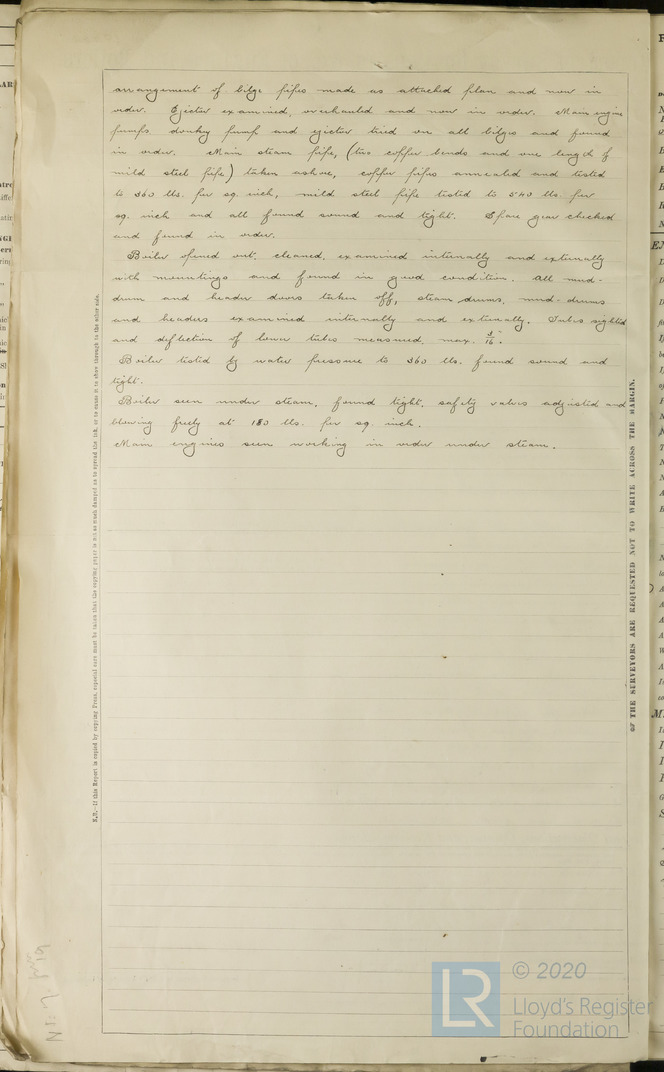 arrangement of bilge pipes made as attached plan and now in
order. Ejector examined, overhauled and now in order. Main engine
pumps donkey pump and ejector tried on all bilges and found
in order. Main steam pipe, (two copper bends and one length of
mild steel pipe) taken ashore, copper pipes annealed and tested
to 360 lbs. per sq. inch, mild steel pipe tested to 540 lbs. per
sq. inch and all found sound and tight. Spare gear checked
and found in order.
Boiler opened out, cleaned, examined internally and externally
with mountings and found in good condition. All mud-
drum and header doors taken off, steam drums, mud-drums
and headers examined internally and externally. Tubes sighted
and deflection of lower tubes measured, max. 3/16".
Boiler tested by water pressure to 360 lbs. found sound and
tight.
Boiler seen under steam, found tight, safety valves adjusted and
blowing freely at 180 lbs. per sq. inch.
Main engines seen working in order under steam.
N.B.—If this Report is copied by copying Press, especial care must be taken that the copying paper is not so much damped as to spread the ink, or to cause it to show through to the other side.
THE SURVEYORS ARE REQUESTED NOT TO WRITE ACROSS THE MARGIN.
© 2020
LR
Lloyd's Register
Foundation